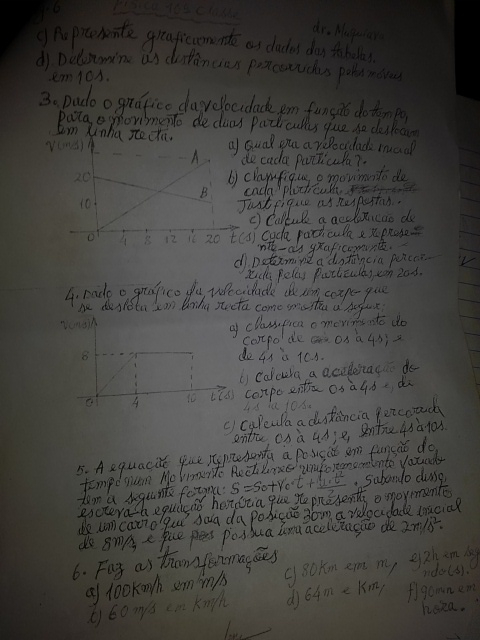 Física 10ª Classe
c) Represente graficamente os dados das tabelas.
d) Determine as distâncias percorridas pelos móveis
em 10s.
3. Dado o gráfico da velocidade em função do tempo,
para o movimento de duas partículas que se deslocam
em linha recta.
V(m/s)
A
20
B
10
0 4 8 12 16 20 t(s)
a) Qual era a velocidade inicial
de cada partícula?
b) Classifique o movimento de
cada partícula
Justifique as respostas.
c) Calcule a aceleração de
cada partícula e represe
nte-as graficamente.
d) Determine a distância percor
rida pelas partículas em 20s.
4. Dado o gráfico da velocidade de um corpo que
se desloca em linha recta como mostra a seguir:
V(m/s)
8
0 4 10 t(s)
a) classifica o movimento do
corpo de 0s à 4s; e
de 4s à 10s.
b) calcula a aceleração do
corpo entre 0s à 4s e, de
4s à 10s.
c) calcula a distância percorrida
entre 0s à 4s; e, entre 4s à 10s.
5. A equação que representa a posição em função do
tempo num Movimento Rectilíneo Uniformemente Variado
tem a seguinte forma: S = S0 + V0t + . Sabendo disso,
escreva a equação horária que representa o movimento
de um carro que saia da posição 20m, a velocidade inicial
de 8m/s, e que possua uma aceleração de 2m/s².
6. Faz as transformações
a) 100Km/h em m/s
b) 60 m/s em Km/h
c) 80Km em m,
d) 64m e Km,
e) 2h em seg
ndo(s).
f) 90min em
hora.